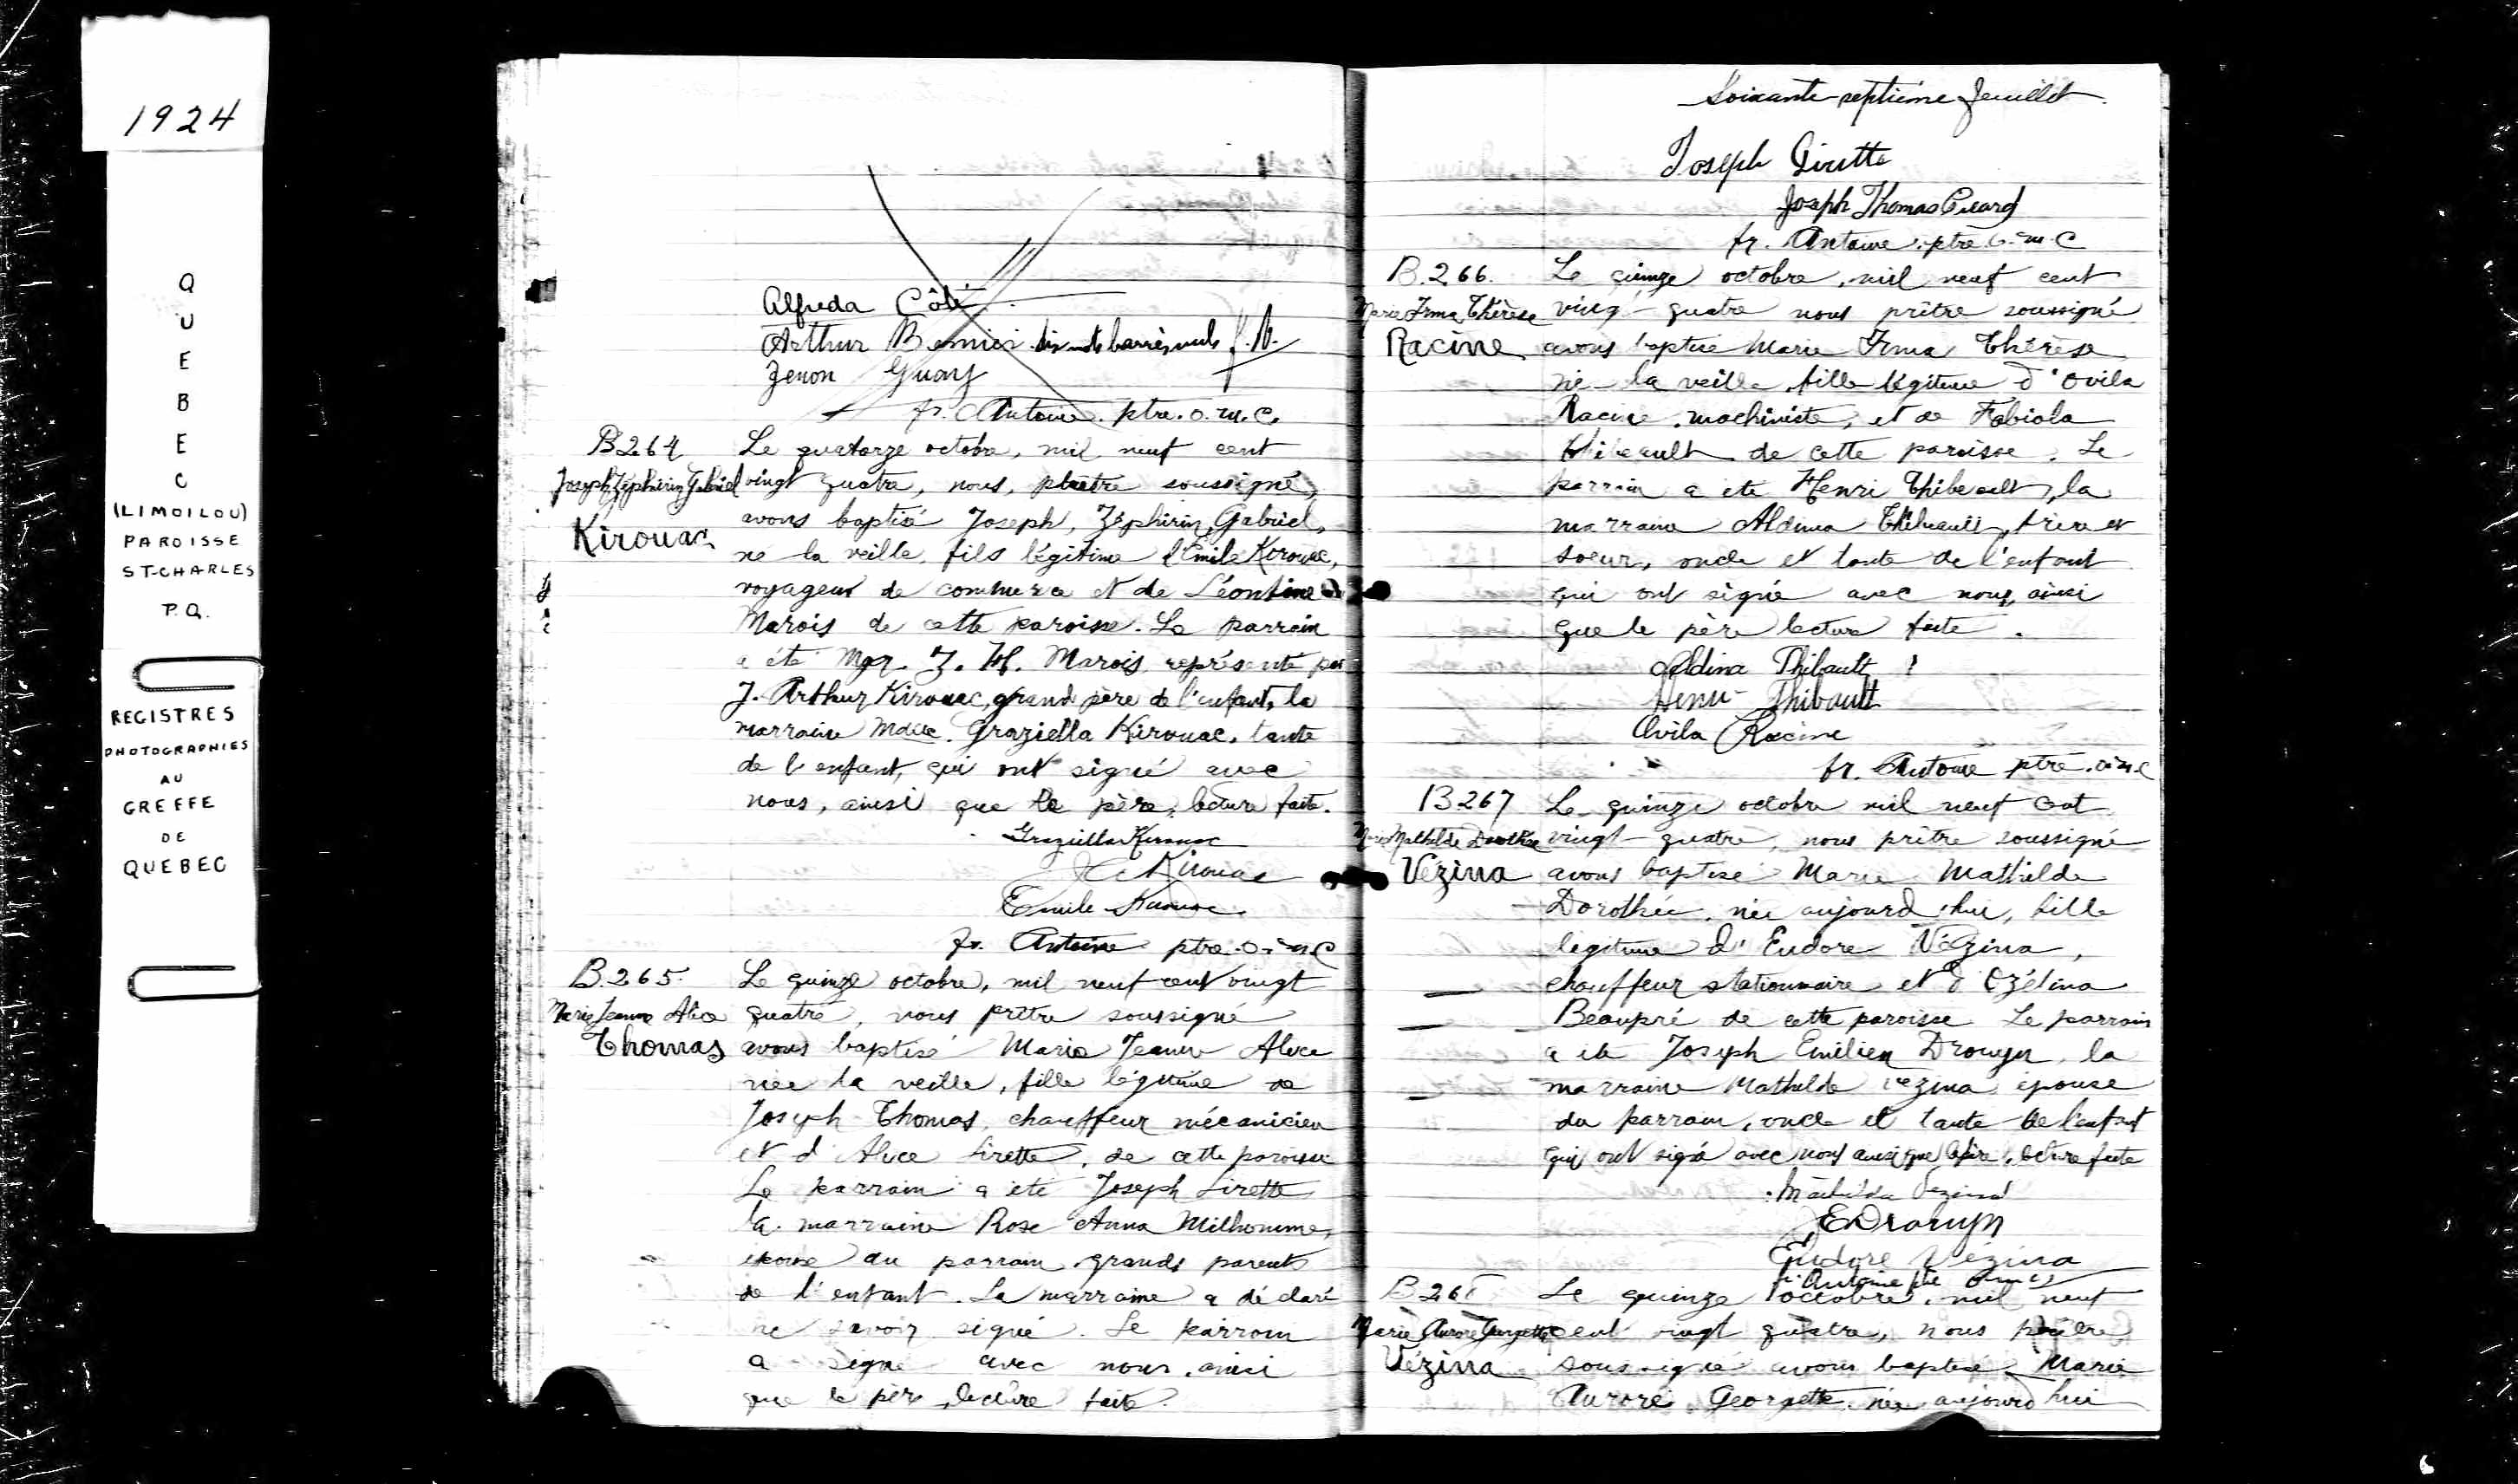 1924
QUEBEC
(LIMOILOU)
PAROISSE
ST-CHARLES
P.Q.
REGISTRES
PHOTOGRAPHIES
AU
GREFFE
DE
QUEBEC
Alfreda Côté
Arthur Bernier dix mots barrés nuls f. A.
Zenon Guay
fr. Antoine. ptre. o. m. c.
B264
Joseph Zéphirin Gabriel
Kirouac
Le quatorze octobre, mil neuf cent
vingt quatre, nous, prêtre soussigné,
avons baptisé Joseph, Zéphirin, Gabriel,
né la veille, fils légitime d'Emile Kirouac,
voyageur de commerce et de Léontine
Marois de cette paroisse. Le parrain
a été Mgr. Marois, représenté par
J. Arthur Kirouac, grand père de l'enfant, la
marraine Mdlle. Graziella Kirouac, tante
de l'enfant, qui ont signé avec
nous, ainsi que le père, lecture faite.
Graziella Kirouac
Kirouac
Emile Kirouac
fr. Antoine ptre. o. m. c
B.265.
Marie Jeanne Alice
Thomas
Le quinze octobre, mil neuf cent vingt
quatre, nous prêtre soussigné
avons baptisé Marie Jeanne Alice
née la veille, fille légitime de
Joseph Thomas, chauffeur mécanicien
et d'Alice Lirette, de cette paroisse
Le parrain a été Joseph Lirette
la marraine Rose Anna Milhomme,
épouse du parrain grands parents
de l'enfant. La marraine a déclaré
ne savoir signé. Le parrain
a signé avec nous, ainsi
que le père, lecture faite.
Soixante-septième feuillet
Joseph
Joseph Thomas
fr. Antoine. ptre. o. m. c
B.266.
Marie Irma Thérèse
Racine
Le quinze octobre, mil neuf cent
vingt-quatre nous prêtre soussigné
avons baptisé Marie Irma Thérèse
née la veille, fille légitime d'Ovila
Racine, machiniste, et de Fabiola
Thibeault de cette paroisse. Le
parrain a été Henri Thibeault, la
marraine Aldina Thibeault, frère et
soeur, oncle et tante de l'enfant
qui ont signé avec nous, ainsi
que le père lecture faite.
Aldina Thibault
Henri Thibault
Ovila Racine
fr. Antoine ptre. o. m. c
B267
Marie Mathilde Dorothée
Vézina
Le quinze octobre mil neuf cent
vingt-quatre, nous prêtre soussigné
avons baptisé Marie Mathilde
Dorothée, née aujourd'hui, fille
légitime d'Eudore Vézina,
chauffeur stationnaire et d'Ozélina
Beaupré de cette paroisse Le parrain
a été Joseph Emilien Drouyn, la
marraine Mathilde Vézina, épouse
du parrain, oncle et tante de l'enfant
qui ont signé avec nous ainsi que le père, lecture faite
Mathilda Vézina
J E Drouyn
Eudore Vézina
fr. Antoine ptre o m c
B268
Marie Aurore Georgette
Vézina
Le quinze octobre, mil neuf
cent vingt quatre, nous prêtre
soussigné avons baptisé Marie
Aurore Georgette, née aujourd'hui